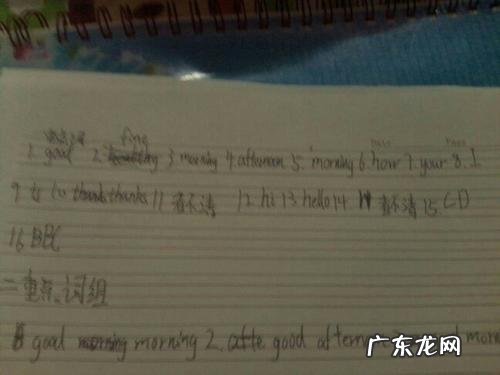 fine
1. goal 2. 3 morning 4. afternoon 5. morning 6. how 7. your 8. I
9. is 10 thanks 11 看不清 12. hi 13. hello 14 看不清 15. CD
16. BBC
二重点词组
goal morning 2. good
广东龙网